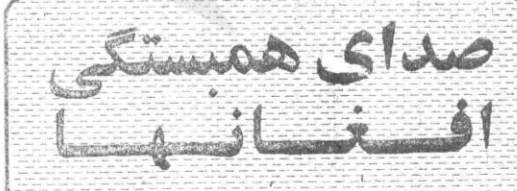 صدای همبستگی
افغانها